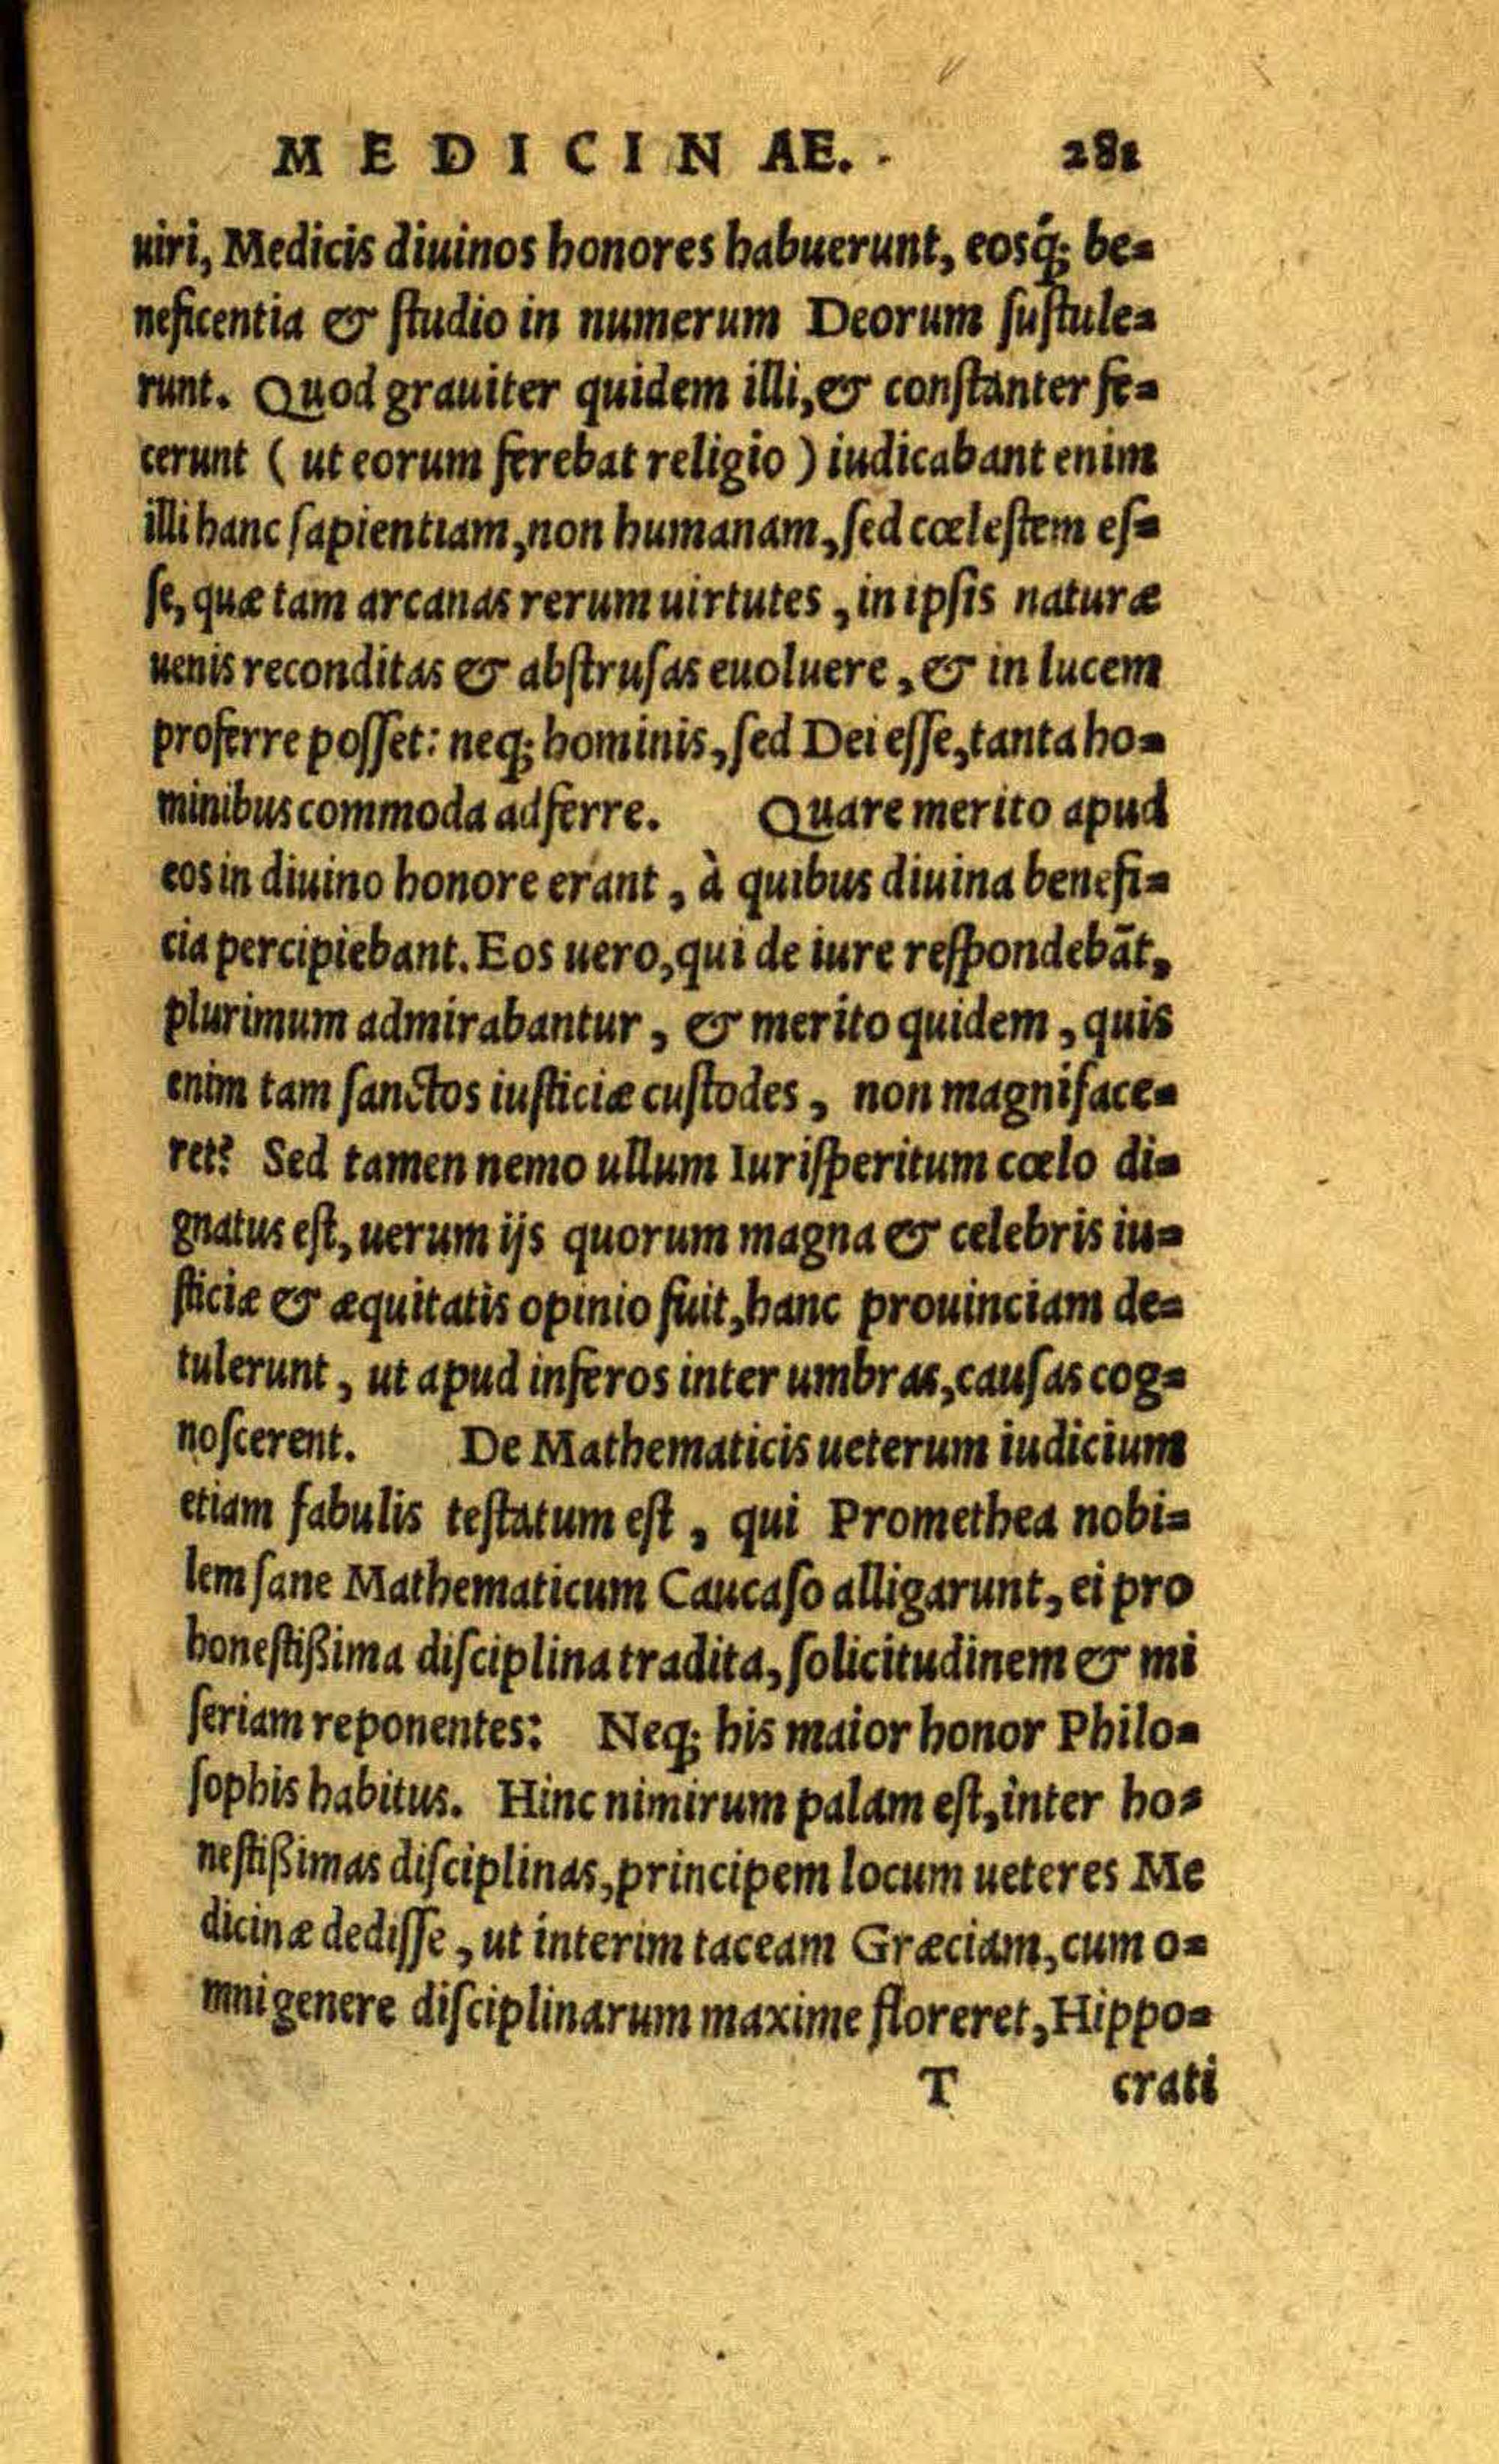 MEDICINAE. 281
uiri, Medicis diuinos honores habuerunt, eosq́; be=
neficentia & ſtudio in numerum Deorum ſuſtule=
runt. Quod grauiter quidem illi, & conſtanter fe=
cerunt ( ut eorum ferebat religio ) iudicabant enim
illi hanc ſapientiam, non humanam, ſed cœleſtem eſ=
ſe, quæ tam arcanas rerum uirtutes, in ipſis naturæ
uenis reconditas & abſtruſas euoluere, & in lucem
proferre poſſet: neq; hominis, ſed Dei eſſe, tanta ho=
minibus commoda adferre. Quare merito apud
eos in diuino honore erant, à quibus diuina benefi=
cia percipiebant. Eos uero, qui de iure reſpondebāt,
plurimum admirabantur, & merito quidem, quis
enim tam ſanctos iuſticiæ cuſtodes, non magniface=
ret? Sed tamen nemo ullum Iuriſperitum cœlo di=
gnatus eſt, uerum ijs quorum magna & celebris iu=
ſticiæ & æquitatis opinio fuit, hanc prouinciam de=
tulerunt, ut apud inferos inter umbras, cauſas cog=
noſcerent. De Mathematicis ueterum iudicium
etiam fabulis teſtatum eſt, qui Promethea nobi=
lem ſane Mathematicum Caucaſo alligarunt, ei pro
honeſtißima diſciplina tradita, ſolicitudinem & mi
ſeriam reponentes: Neq; his maior honor Philo=
ſophis habitus. Hinc nimirum palam eſt, inter ho=
neſtißimas diſciplinas, principem locum ueteres Me
dicinæ dediſſe, ut interim taceam Græciam, cum o=
mni genere diſciplinarum maxime floreret, Hippo=
T crati